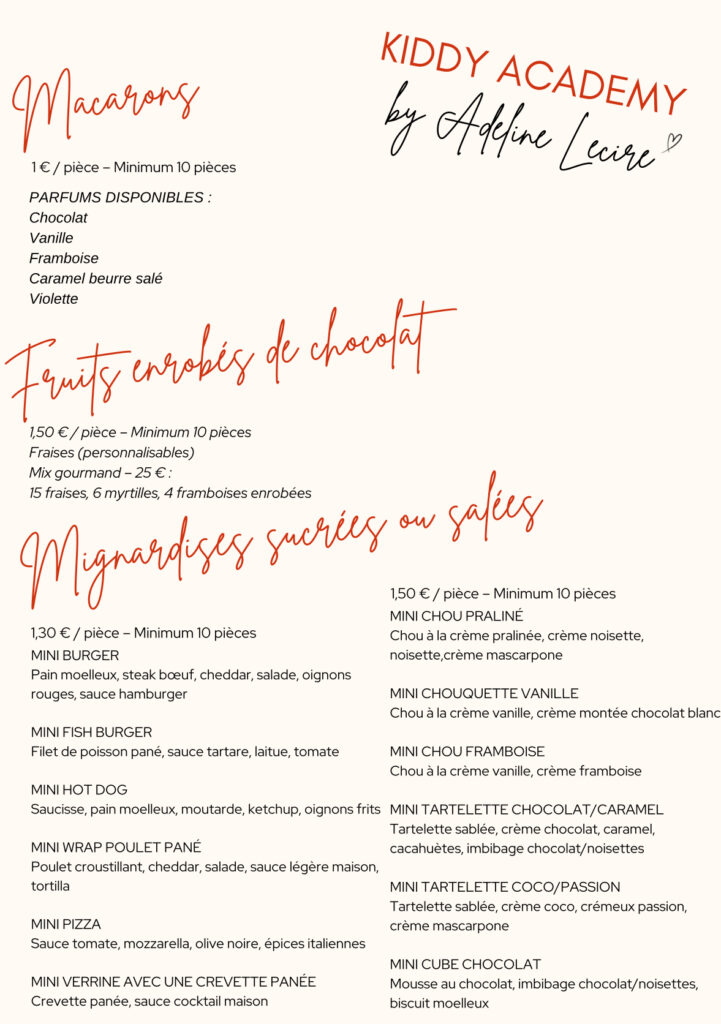 KIDDY ACADEMY
by Adeline Lecire
Macarons
1 € / pièce – Minimum 10 pièces
PARFUMS DISPONIBLES :
Chocolat
Vanille
Framboise
Caramel beurre salé
Violette
Fruits enrobés de chocolat
1,50 € / pièce – Minimum 10 pièces
Fraises (personnalisables)
Mix gourmand – 25 € :
15 fraises, 6 myrtilles, 4 framboises enrobées
Mignardises sucrées ou salées
1,30 € / pièce – Minimum 10 pièces
MINI BURGER
Pain moelleux, steak bœuf, cheddar, salade, oignons
rouges, sauce hamburger
MINI FISH BURGER
Filet de poisson pané, sauce tartare, laitue, tomate
MINI HOT DOG
Saucisse, pain moelleux, moutarde, ketchup, oignons frits
MINI WRAP POULET PANÉ
Poulet croustillant, cheddar, salade, sauce légère maison,
tortilla
MINI PIZZA
Sauce tomate, mozzarella, olive noire, épices italiennes
MINI VERRINE AVEC UNE CREVETTE PANÉE
Crevette panée, sauce cocktail maison
1,50 € / pièce – Minimum 10 pièces
MINI CHOU PRALINÉ
Chou à la crème pralinée, crème noisette,
noisette,crème mascarpone
MINI CHOUQUETTE VANILLE
Chou à la crème vanille, crème montée chocolat blanc
MINI CHOU FRAMBOISE
Chou à la crème vanille, crème framboise
MINI TARTELETTE CHOCOLAT/CARAMEL
Tartelette sablée, crème chocolat, caramel,
cacahuètes, imbibage chocolat/noisettes
MINI TARTELETTE COCO/PASSION
Tartelette sablée, crème coco, crémeux passion,
crème mascarpone
MINI CUBE CHOCOLAT
Mousse au chocolat, imbibage chocolat/noisettes,
biscuit moelleux